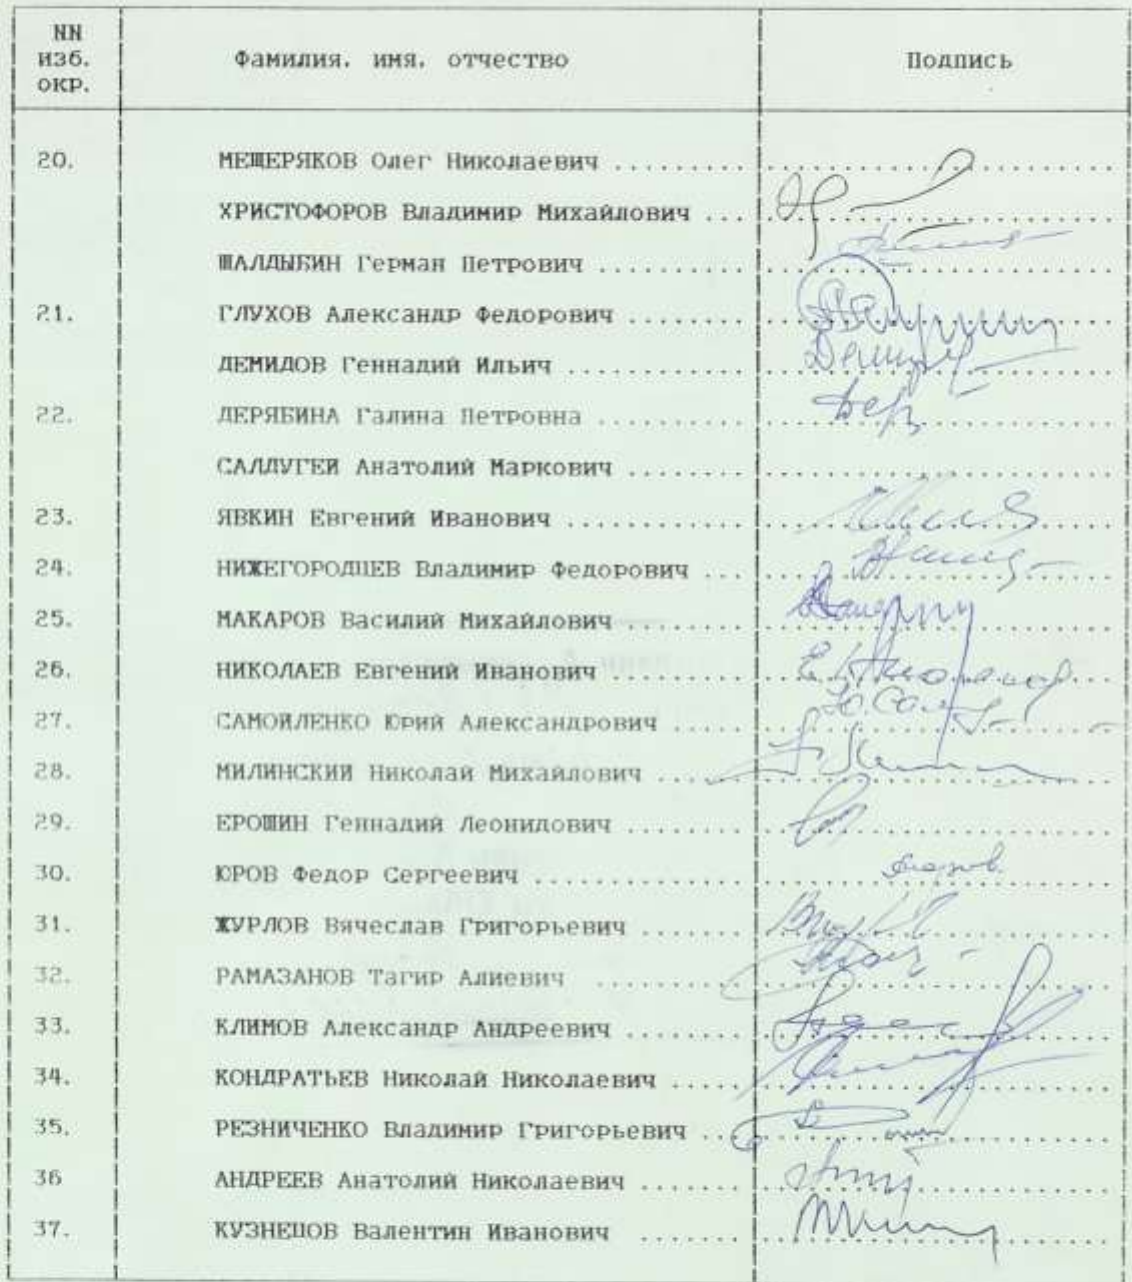 NN
изб.
окр.
Фамилия, имя, отчество
Подпись
20. МЕЩЕРЯКОВ Олег Николаевич ........
ХРИСТОФОРОВ Владимир Михайлович ...
ШАЛДЫБИН Герман Петрович .........
21. ГЛУХОВ Александр Федорович .......
ДЕМИДОВ Геннадий Ильич ...........
22. ДЕРЯБИНА Галина Петровна .........
САЛДУГЕЙ Анатолий Маркович .......
23. ЯВКИН Евгений Иванович ...........
24. НИЖЕГОРОДЦЕВ Владимир Федорович ...
25. МАКАРОВ Василий Михайлович .......
26. НИКОЛАЕВ Евгений Иванович ........
27. САМОЙЛЕНКО Юрий Александрович .....
28. МИЛИНСКИЙ Николай Михайлович .....
29. ЕРОШИН Геннадий Леонидович .......
30. ЮРОВ Федор Сергеевич .............
31. ЖУРЛОВ Вячеслав Григорьевич ......
32. РАМАЗАНОВ Тагир Алиевич .........
33. КЛИМОВ Александр Андреевич .......
34. КОНДРАТЬЕВ Николай Николаевич ....
35. РЕЗНИЧЕНКО Владимир Григорьевич ..
36 АНДРЕЕВ Анатолий Николаевич ......
37. КУЗНЕЦОВ Валентин Иванович ......